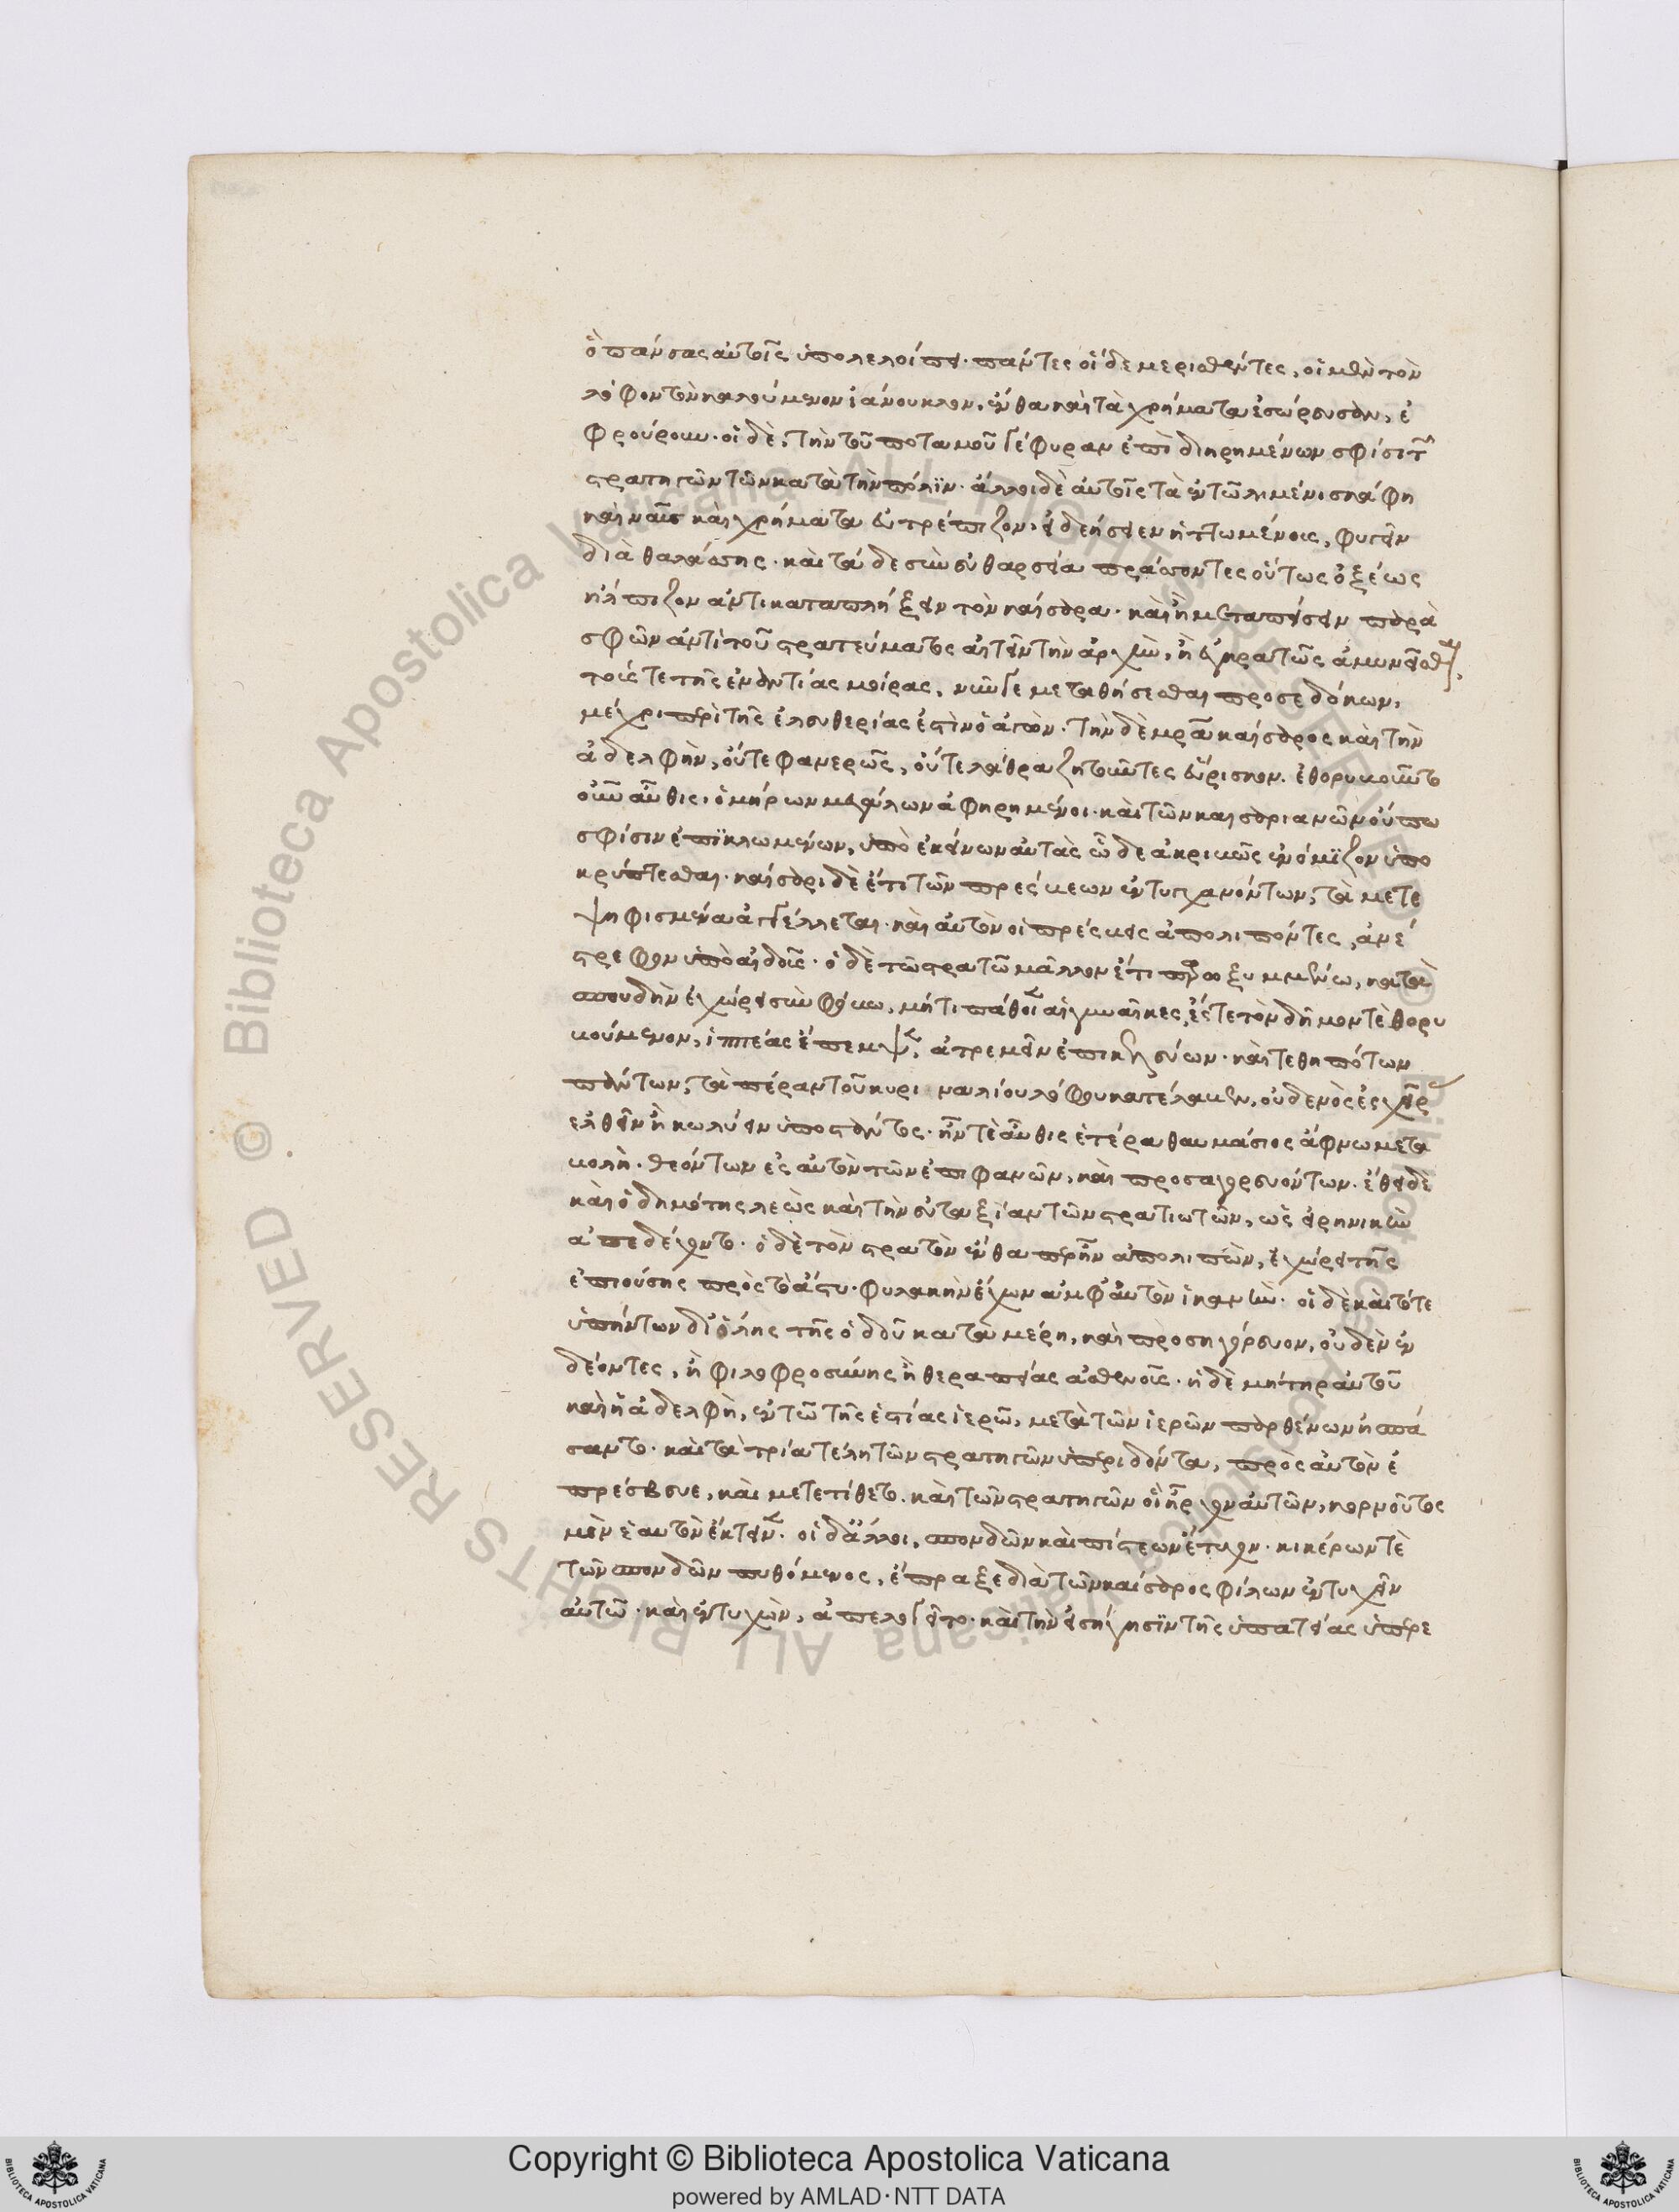 ὁ πάνσας αὐτοῖς ὑπολελοίπει. πάντες οἵδε μερισθέντες, οἱ μὲν τὸν
λόφον τὸν καλούμενον ἰάνουκλον, ἔνθα καὶ τὰ χρήματα ἐσώρευσαν, ἐ
φρούρουν. οἱ δὲ, τὴν τοῦ ποταμοῦ γέφυραν ἐπιδιῃρημένων σφίσι τῶν
στρατηγῶν τῶν κατὰ τὴν πόλϊν. ἄλλοι δὲ αὐτοῖς τὰ ἐν τῷ λιμένι σκάφη
καὶ ναῦς καὶ χρήματα εὐτρέπιζον, εἰ δεήσειεν ἡττωμένοις, φυγεῖν
διὰ θαλάσσης. καὶ τάδε σὺν εὐθαρσείᾳ πράσσοντες οὕτως ὀξέως
ἤλπιζον ἀντικαταπλήξειν τὸν καίσαρα. καὶ ἢ μεταπείσειν παρὰ
σφῶν ἀντὶ τοῦ στρατεύματος αἰτεῖν τὴν ἀρχὴν, ἢ ἐγκρατῶς ἀμυνεῖσθαι.
τούς τε τῆς ἐναντίας μοίρας, νῦν γε μεταθήσεσθαι προσεδόκων,
μέχρι περὶ τῆς ἐλευθερίας ἐστὶν ὁ ἀγών. τὴν δὲ μητέρα καίσαρος καὶ τὴν
ἀδελφὴν, οὔτε φανερῶς, οὔτε λάθρα ζητοῦντες εὕρισκον. ἐθορυβοῦντο
οὖν αὖθις, ὁμήρων μεγάλων ἀφῃρημένοι. καὶ τῶν καισαριανῶν οὔπω
σφίσιν ἐπϊκλωμένων, ὑπὸ ἐκείνων αὐτὰς ὧδε ἀκριβῶς ἐνόμϊζον ὑπο
κρύπτεσθαι. καίσαρι δὲ ἔτι τῶν πρέσβεων ἐντυγχανόντων, τὰ μετε
ψηφισμένα ἀγγέλλεται. καὶ αὐτὸν οἱ πρέσβεις ἀπολιπόντες, ἀνέ
στρεφον ὑπὸ αἰδοῦς. ὁ δὲ τῷ στρατῷ μᾶλλον ἔτι παρωξυμμένῳ, κατὰ
σπουδὴν ἐχώρει σὺν φόβῳ, μή τι πάθοιεν αἱ γυναῖκες, ἔς τε τὸν δῆμον τεθορυ
βούμενον, ἱππέας ἔπεμψεν, ἀτρεμεῖν ἐπικελεύων. καὶ τεθηπότων
πάντων, τὰ πέραν τοῦ κυριναλίου λόφου κατέλαβεν, οὐδενὸς ἐς χεῖρας
ἐλθεῖν ἢ κωλύειν ὑποστάντος. ἦν τε αὖθις ἑτέρα θαυμάσιος ἄφνω μετα
βολή. θεόντων ἐς αὐτὸν τῶν ἐπιφανῶν, καὶ προσαγορευόντων. ἔθει δὲ
καὶ ὁ δημότης λεὼς καὶ τὴν εὐταξίαν τῶν στρατιωτῶν, ὡς εἰρηνικὴν
ἀπεδέχοντο. ὁ δὲ τὸν στρατὸν ἔνθα περ ἦν ἀπολιπὼν, ἐχώρει τῆς
ἐπιούσης πρὸς τὸ ἄστυ. φυλακὴν ἔχων ἀμφ' αὑτὸν ἱκανήν. οἱ δὲ καὶ τότε
ὑπήντων δι' ὅλης τῆς ὁδοῦ κατὰ μέρη, καὶ προσηγόρευον, οὐδὲν ἐν
δέοντες, ἢ φιλοφροσύνης ἢ θεραπείας ἀσθενοῦς. ἡ δὲ μήτηρ αὐτοῦ
καὶ ἡ ἀδελφὴ, ἐν τῷ τῆς ἑστίας ἱερῷ, μετὰ τῶν ἱερῶν παρθένων ἠσπά
σαντο. καὶ τὰ τρία τέλη τῶν στρατηγῶν ὑπεριδόντα, πρὸς αὐτὸν ἐ
πρέσβευε, καὶ μετετίθετο. καὶ τῶν στρατηγῶν οἳ ἦρχον αὐτῶν, κορνοῦτος
μὲν ἑαυτὸν ἔκτεινεν. οἱ δ' ἄλλοι, σπονδῶν καὶ πίστεων ἔτυχον. κικέρων τὲ
τῶν σπονδῶν πυθόμενος, ἔπραξε διὰ τῶν καίσαρος φίλων ἐντυχεῖν
αὐτῷ. καὶ ἐντυχὼν, ἀπελογεῖτο. καὶ τὴν ἐσήγησϊν τῆς ὑπατείας ὑπερε
Copyright © Biblioteca Apostolica Vaticana
powered by AMLAD·NTT DATA